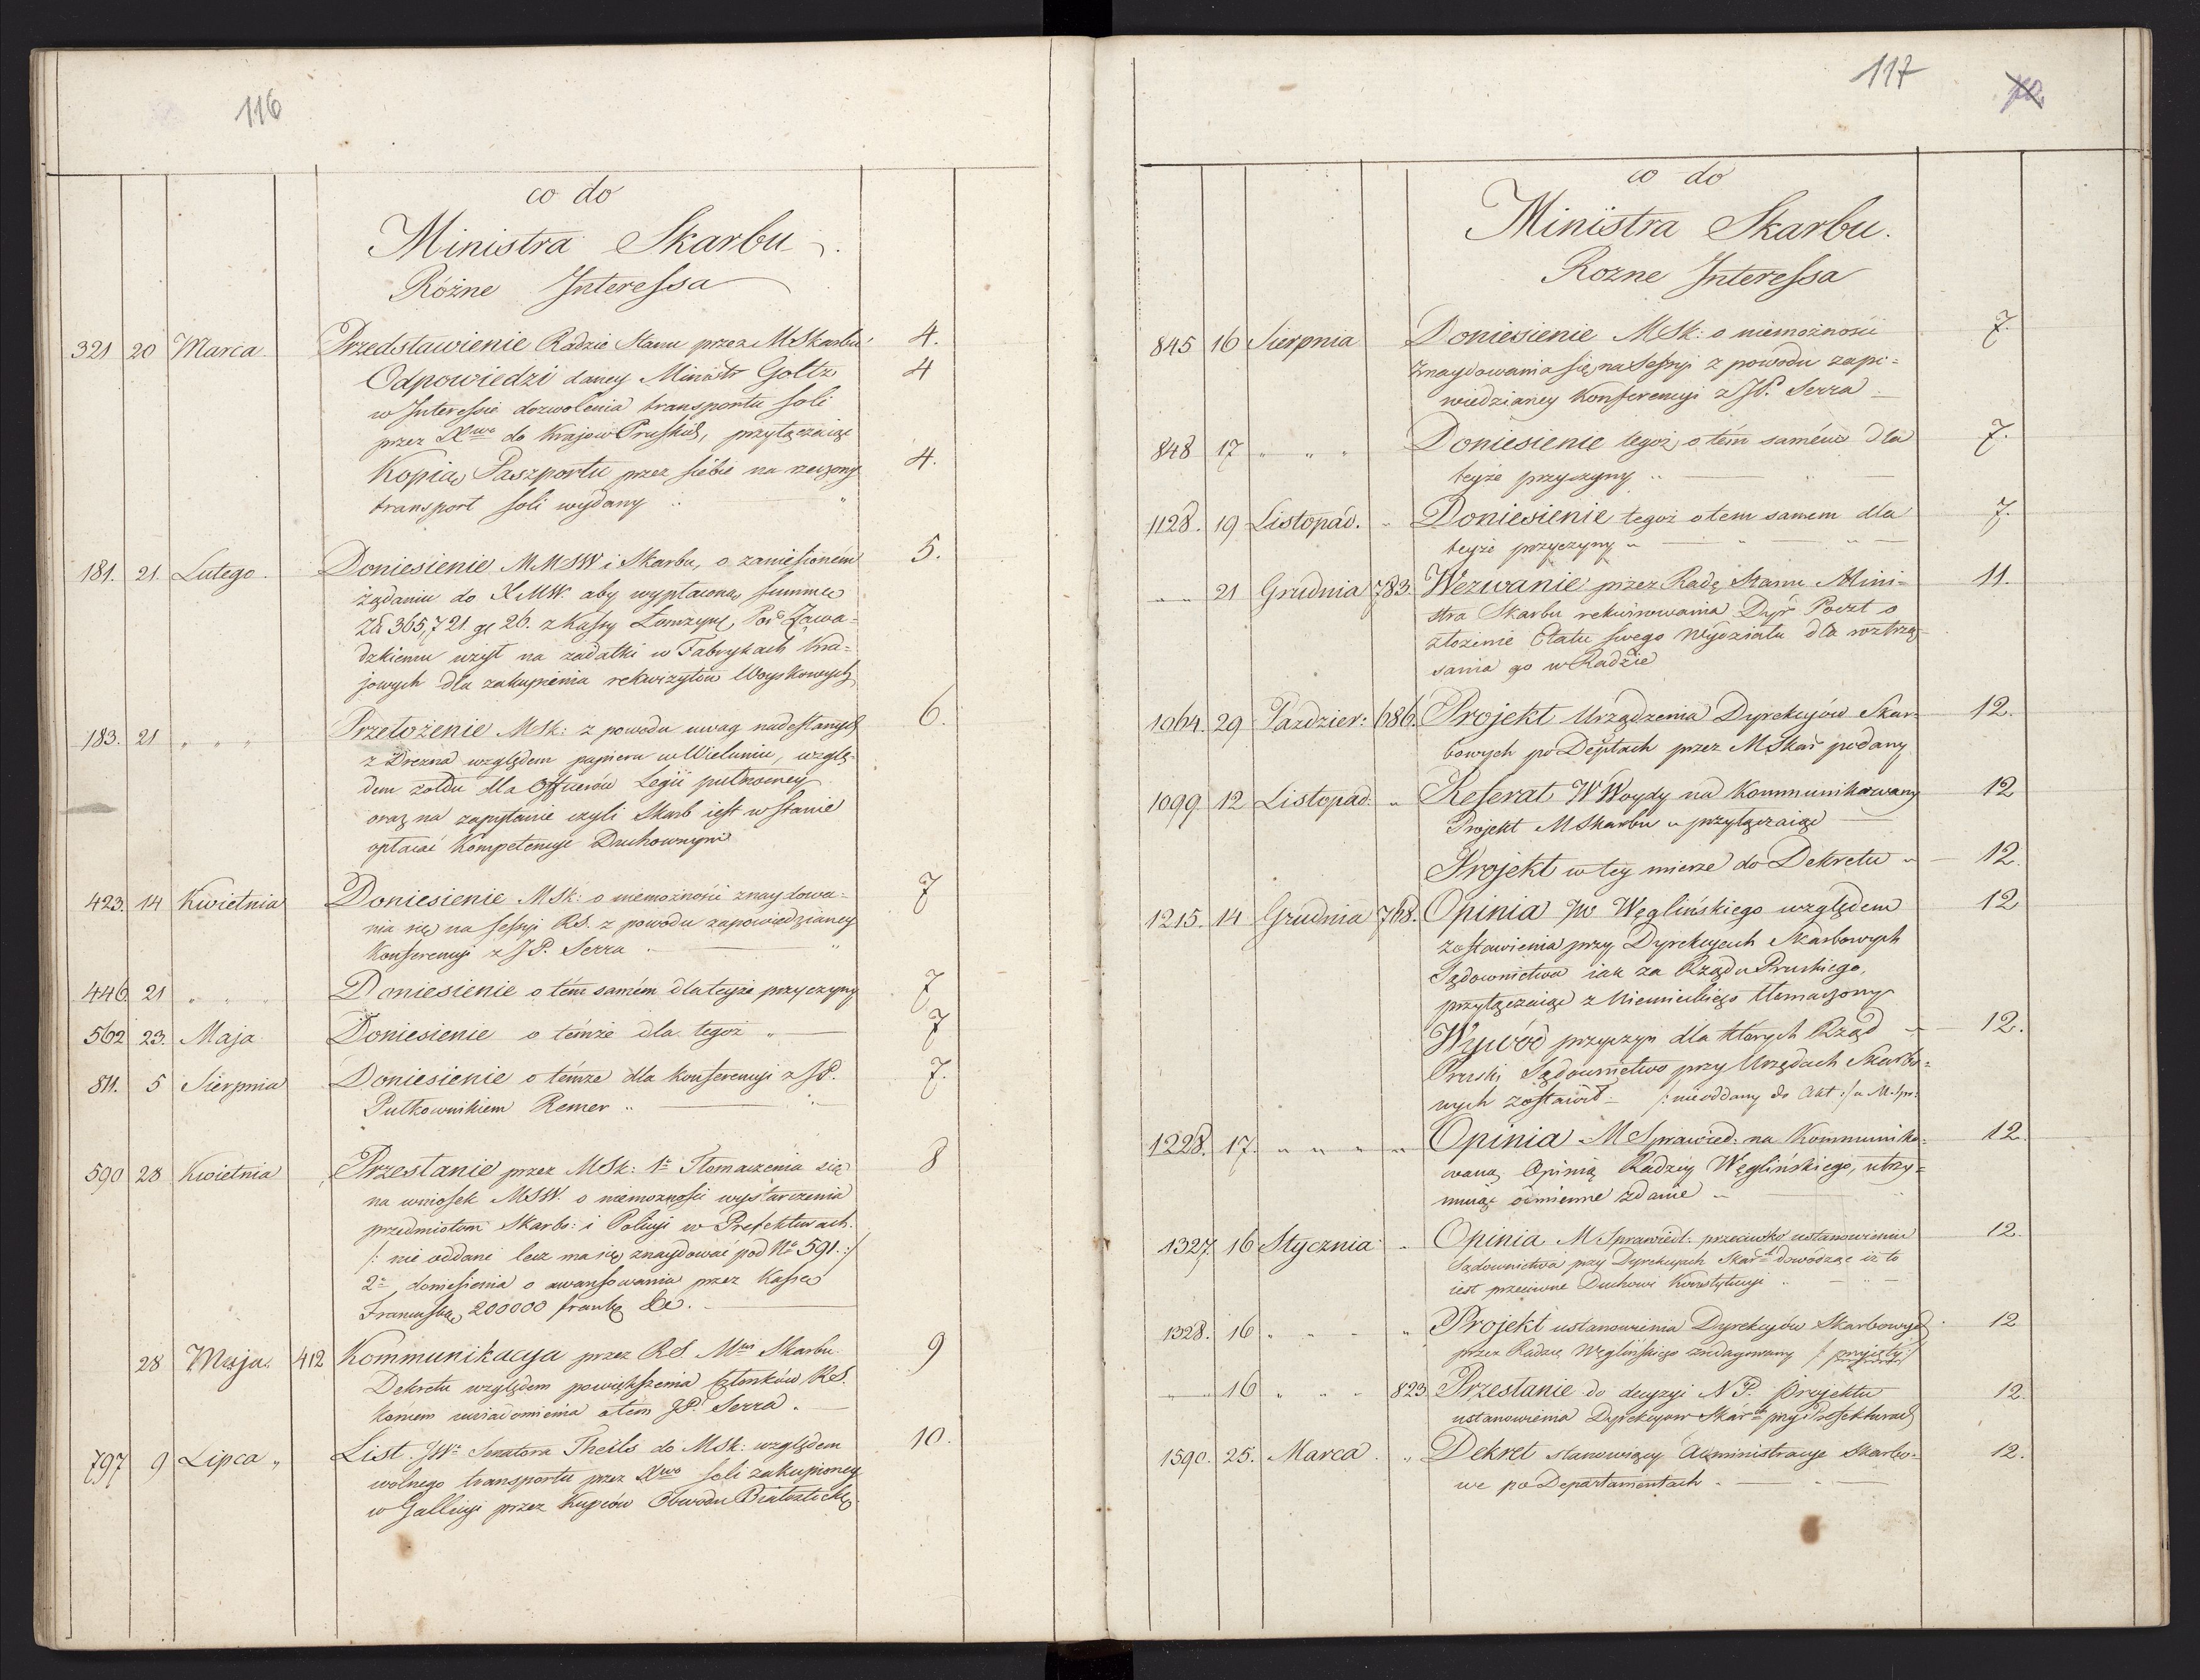 116
co do
Ministra Skarbu.
Różne Interessa
321 20 Marca Przedstawienie Radzie Stanu przez M Skarbu 4.
Odpowiedzi daney Ministr Goltz 4
w Interessie dozwolenia transportu soli
przez Xtwo do Krajow Pruskich, przyłączaiąc
Kopią Paszportu przez siebie na rzeczony 4.
transport soli wydany
181. 21. Lutego. Doniesienie MMSW i Skarbu, o zaniesionem 5.
żądaniu do XMW. aby wypłaconą summę
Zł 365,721. gr 26. z Kassy Łomzyns. Zawa-
dzkiemu użyt na zadatki w Fabrykach Kra-
jowych dla zakupienia rekwizytow Woyskowych
183. 21 " " " Przełożenie MSk: z powodu uwag nadesłanych 6.
z Drezna względem papieru w Wieluniu, wzglę-
dem żołdu dla Officerów Legii pułnocney
oraz na zapytanie czyli Skarb iest w stanie
opłacać Kompetencye Duchownym
423. 14 Kwietnia Doniesienie MSk: o niemożności znaydowa- 7
nia się na sessyi RS. z powodu zapowiedzianey
Konferencyi z JP. Serra
446 21 " " Doniesienie o tém samém dla teyże przyczyny 7
562 23. Maja Doniesienie o témże dla tegoż " 7
811. 5 Sierpnia Doniesienie o témże dla Konferencyi z JP. 7.
Pułkownikiem Remer "
590 28 Kwietnia Przesłanie przez MSk: 1o Tłomaczenia się 8
na wniosek MSW. o niemożności wystarczenia
przedmiotom Skarbo: i Policyi w Prefekturach.
/: nie oddane lecz ma się znaydować pod No 591. :/
2o doniesienia o awansowaniu przez Kassę
Francuską 200000 frank &c.
28 Maja. 412 Kommunikacya przez RS Mwi Skarbu 9
Dekretu względem powiększenia Członków RS.
końcem uwiadomienia o tem JP. Serra.
797 9 Lipca " List JWo Senatora Theils do MSk: względem 10.
wolnego transportu przez Xwo soli zakupioney
w Gallicyi przez Kupców Obwodu Białostockie.
117
co do
Ministra Skarbu.
Rozne Interessa
845 16 Sierpnia Doniesienie MSk: o niemożności 7.
znaydowania się na Sessyi z powodu zapo-
wiedzianey Konferencyi z JP. Serra
848 17 " " " Doniesienie tegoż o tém samém dla 7.
teyże przyczyny "
1128. 19 Listopad. " Doniesienie tegoż o tem samem dla 7.
teyże przyczyny "
" " 21 Grudnia 783. Wezwanie przez Radę Stanu Mini- 11.
stra Skarbu rekwirowania Dyr Poczt o
złożenie Etatu swego Wydziału dla roztrzą-
sania go w Radzie
1064. 29 Pazdzier: 686. Projekt Urządzenia Dyrekcyów Skar- 12.
bowych po Deptach przez M Skar podany
1099. 12 Listopad. " Referat W Woydy nad Kommunikowany 12
Projekt M Skarbu " przyłączaiąc
Projekt w tey mierze do Dekretu " 12.
1215. 14 Grudnia 768. Opinia JW Węglińskiego względem 12
zostawienia przy Dyrekcyach Skarbowych
Sądownictwa iak za Rządu Pruskiego,
przyłączaiąc z Niemieckiego tłomaczony
Wywód przyczyn dla których Rząd 12.
Pruski Sądownictwo przy Urzędach Skarbo-
wych zostawił /: nieoddany do Akt :/ u M. Spr:
1228. 17. " " " " Opinia M Sprawied. na Kommuniko- 12.
waną Opinią Radzcy Węglińskiego, utrzy-
muiąc odmienne zdanie "
1327. 16 Stycznia " Opinia M Sprawiedl: przeciwko ustanowieniu 12.
Sądownictwa przy Dyrekcyach Skar. dowodząc iż to
iest przeciwne Duchowi Konstytucyi "
1328. 16 " " " " Projekt ustanowienia Dyrekcyów Skarbowych 12
przez Radzcę Węglińskiego zredagowany /: przyięty :/
16 " " " 823 Przesłanie do decyzyi N P. Projektu 12.
ustanowienia Dyrekcyow Skar. przy Prefekturach
1590. 25. Marca. " Dekret stanowiący Administracye Skarbo- 12.
we po Departamentach